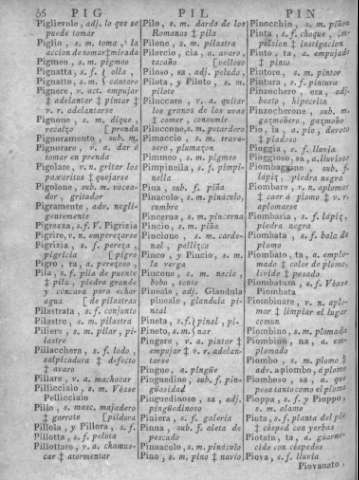 56 PIG PIL PIN
Piglievole, adj. lo que se
puede tomar
Piglio, s. m. toma, la
accion de tomar ‡ mirada
Pigmeo, s. m. pigmeo
Pignatta, s. f. ‡ olla,
Pignatto, s. m. ‡ cantaro
Pignere, v. act. empujar
‡ adelantar ‡ pintar ‡
v. r. adelantarse
Pignone, s. m. dique,
[prenda
Pignoramento, sub. m.
Pignorare, v. a. dar ó
tomar en prenda
Pigolare, v. n. gritar los
paxaritos ‡ quejarse
Pigolone, sub. m. vocea-
dor, gritador
Pigramente, adv. negli-
gentemente
Pigrezza, s. f. V. Pigrizia
Pigrire, v. n. emperezarse
Pigrizia, s. f. pereza,
pigricia [pigre
Pigro, ra, a. perezoso,
Pila, s. f. pila de puente
‡ pila, piedra grande
y concava para echar
agua [de pilastras
Pilastrata, s. f. conjunto
Pilastro, s. m. pilastra
Piliere, s. m. pilar, pi-
lastre
Pillacchera, s. f. lodo,
salpicadura ‡ defecto
‡ avaro
Pillare, v. a. machacar
Pillicciaio, s. m. Véase
Pellicciaio
Pillo, s. m. mezc. majadero
‡ garrote [píldora
Pillola, y Pillora, s. f.
Pillotta, s. f. pelota
Pillottare, v. a. chamus-
car ‡ atormentar
Pilo, s. m. dardo de los
Romanos ‡ pila
Pilone, s. m. pilastra
Pilorcio, cia, a. avaro,
tacaño [velloso
Piloso, sa, adj. peludo,
Pilota, y Piloto, s. m.
piloto
Piluccare, v. a. quitar
los granos de las uvas
‡ comer, consumir
Piluccone, s. m. petardero
Pimaccio, s. m. trave-
sero, plumazon
Pimmeo, s. m. pigmeo
Pimpinella, s. f. pimpi-
nella
Pina, sub. f. piña
Pinacolo, s. m. pináculo,
cumbre
Pincerna, s. m. pincerna
Pincio, s. m. piña
Pincione, s. m. carde-
nal, pallizce
Pinco, y Pincio, s. m.
la verga
Pincone, s. m. necio,
bobo, tonto
Pineale, adj. Glandula
pineale, glandula pi-
neal
Pineta, s. f. ‡ pinal, pi-
Pineto, s. m. ‡ nar
Pingere, v. a. pintar ‡
empujar ‡ v. r. adelan-
tarse
Pingue, a. pingüe
Pinguedine, sub. f. pin-
güosidad
Pinguedinoso, sa, adj.
pingüedinoso
Piniera, s. f. galeria
Pinna, sub. f. aleta de
pescado
Pinnacolo, s. m. pináculo
Pino, s. m. pino ‡ navio
Pinocchio, s. m. piñon
Pinta, s. f. choque, im-
pulsion ‡ instigacion
Pinto, ta, a. empujado
‡ pinto
Pintore, s. m. pintor
Pintura, s. f. pintura
Pinzochero, era, adj.
beato, hipocrita
Pinzocherone, sub. m.
gazmoñero, gazmoño
Pio, ia, a. pio, devoto
‡ piadoso
Pioggia, s. f. lluvia
Pioggioso, sa, a. lluvioso
Piombaggine, sub. f.
lapiz, piedra negra
Piombare, v. n. aplomar
‡ caer á plomo ‡ v. r.
aplomarse
Piombaria, s. f. lápiz,
piedra negra
Piombata, s. f. bala de
plomo
Piombato, ta, a. emplo-
mado ‡ color de plomo,
livido ‡ pesado
Piombatura, s. f. Véase
Piombata
Piombinare, v. n. aplo-
mar ‡ limpiar el lugar
comun
Piombino, s. m. plomada
Piombino, na, a. em-
plomado
Piombo, s. m. plomo ‡
adv. a piombo, á plomo
Piomboso, sa, a. por
pesa tanto como el plomo
Pioppa, s. f. y Pioppo,
s. m. alamo
Piota, s. f. planta del pie
‡ césped con yerbas
Piotato, ta, a. guarne-
cido con céspedes
Piova, s. f. lluvia
Piovanato,